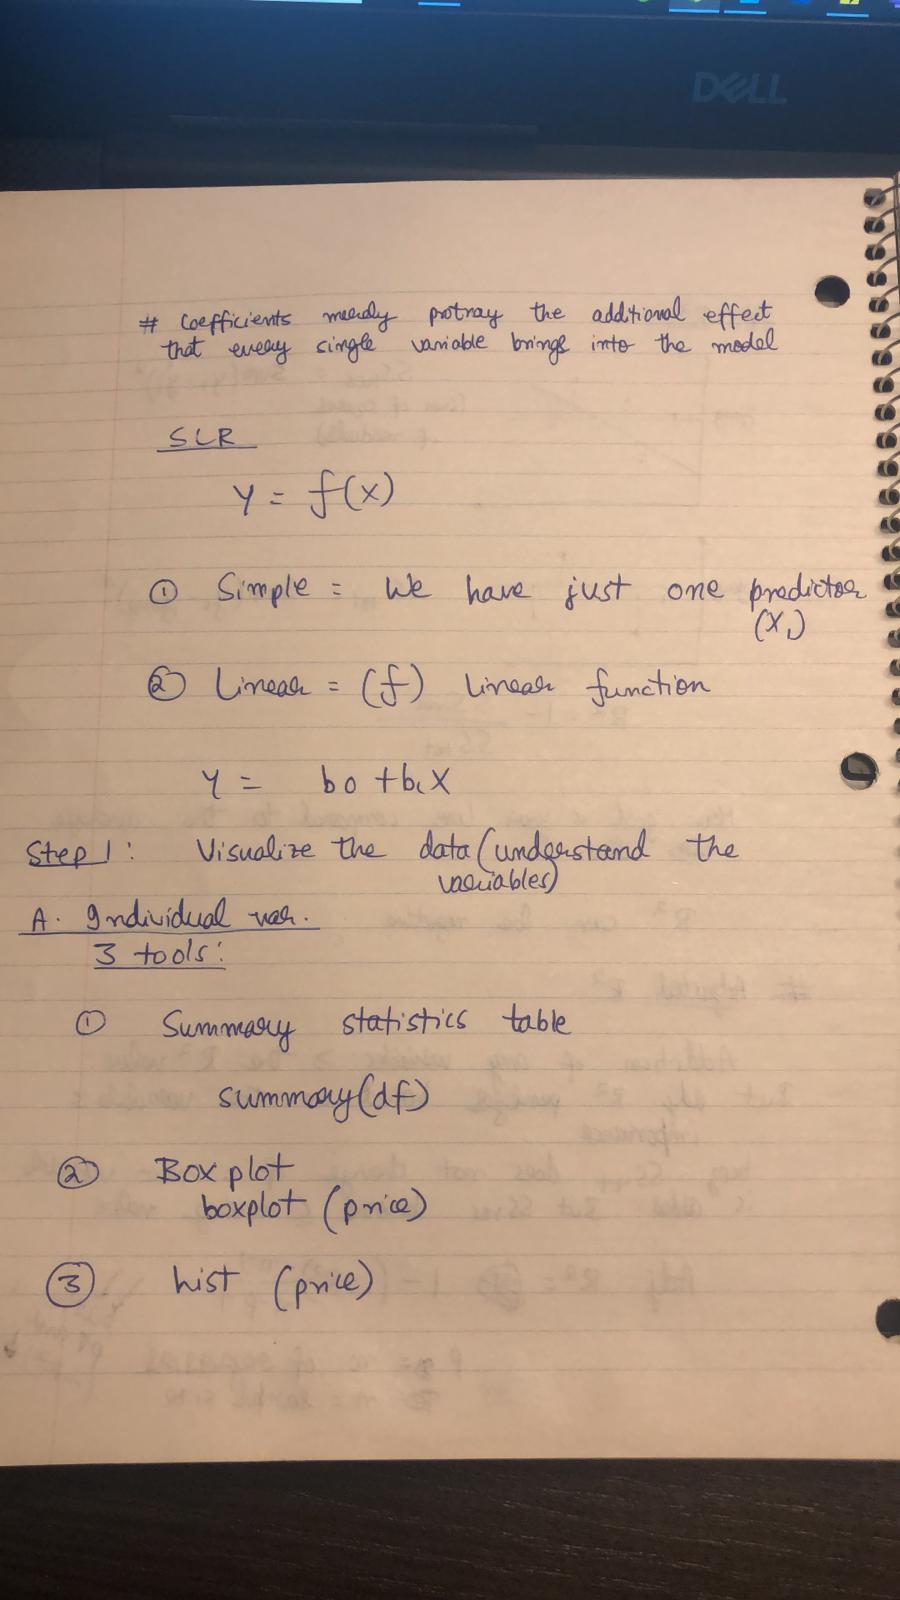 DELL
# Coefficients merely protray the additional effect
that every single variable brings into the model
SLR
Y = f(x)
① Simple = We have just one predictor
(X₁)
② Linear = (f) Linear function
Y = b0 + b₁X
Step 1: Visualize the data (understand the
variables)
A. Individual var.
3 tools:
① Summary statistics table
summary(df)
② Box plot
boxplot (price)
③ hist (price)